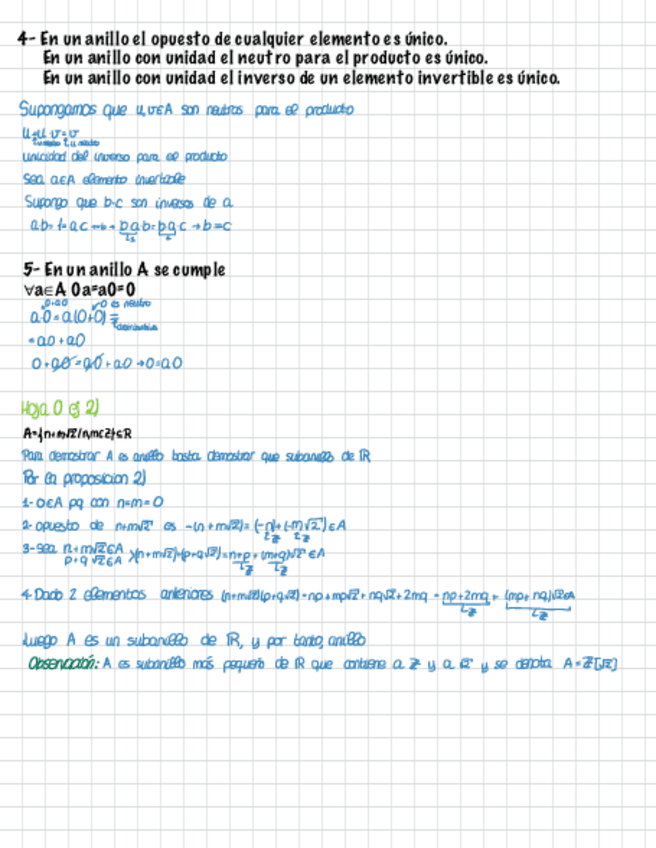 4- En un anillo el opuesto de cualquier elemento es único.
En un anillo con unidad el neutro para el producto es único.
En un anillo con unidad el inverso de un elemento invertible es único.
Supongamos que u,v∈A son neutros para el producto
u=u·v=v
unicidad del inverso para el producto
Sea a∈A elemento invertible
Supongo que b·c son inversos de a
ab=1=ac → bab=bac → b=c
5- En un anillo A se cumple
∀a∈A 0a=a0=0
0 es neutro
a0=a(0+0)=
=a0+a0
0+a0=a0+a0→0=a0
Hoja 0 ej 2)
A={n+m√2/n,m∈Z}⊆R
Para demostrar A es anillo basta demostrar que subanillo de R
Por la proposicion 2)
1-0∈A pq con n=m=0
2-opuesto de n+m√2 es -(n+m√2)=(-n)+(-m)√2)∈A
3-sea n+m√2∈A
p+q√2∈A }(n+m√2)+(p+q√2)=n+p+(m+q)√2∈A
4-Dado 2 elementos anteriores (n+m√2)(p+q√2)=np+mp√2+nq√2+2mq=np+2mq+(mp+nq)√2∈A
Luego A es un subanillo de R, y por tanto, anillo
Observación: A es subanillo más pequeño de R que contiene a Z y a √2 y se denota A=Z[√2]